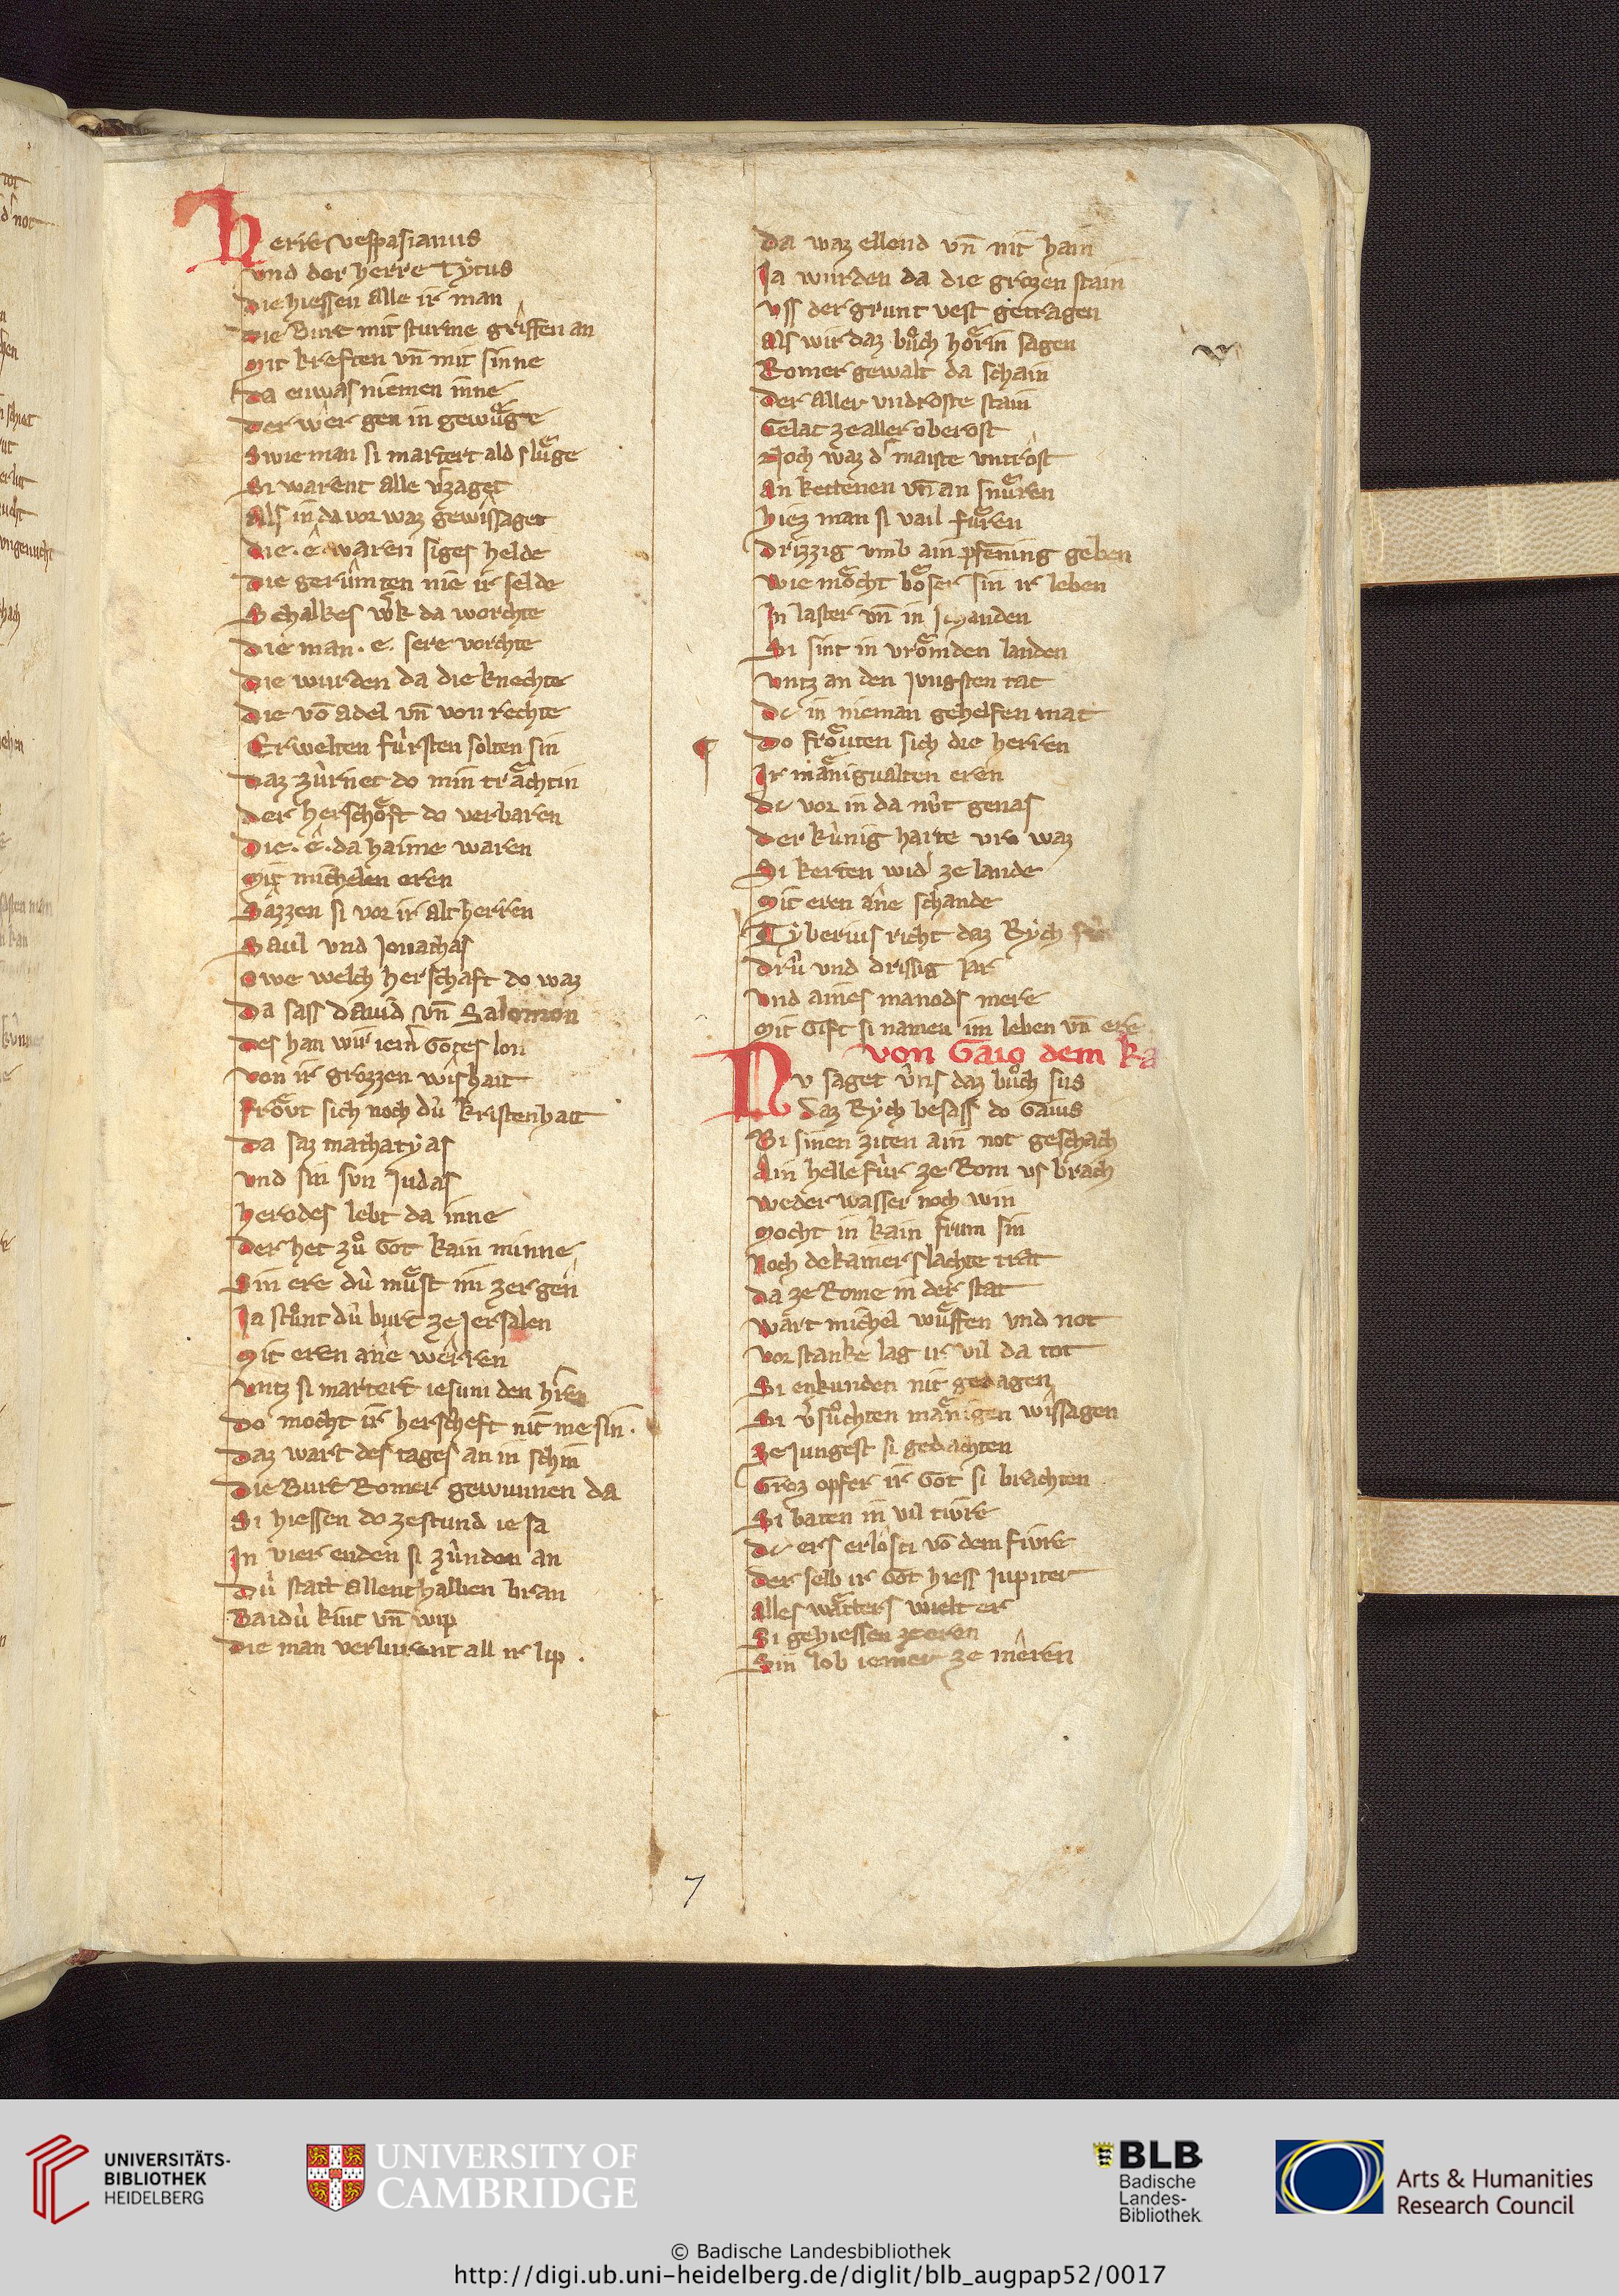 Herre vespasianus
Vnd der herre Tytus
Die hiessen alle ir man
Die Burk mit sturme griffen an
Mit kreften vn̄ mit sinne
Da enwas niemen inne
Der wer gen in gewůge
Swie man si martert ald slůge
Si warent alle vˀzaget
Als in da vor waz gewissaget
Die .ê. waren siges helde
Die gerůmten nie ir selde
Schalkes wˀk da worchte
Die man .e. sere vorchte
Die wurden da die knechte
Die vō adel vn̄ von rechte
Erwelten fúrsten solten sin
Daz zúrnet do min trächtin
Der herschäft do verbaren
Die .ê. da haime waren
Mit michelen eren
Sazzen si vor ir altherren
Saul vnd Jonathas
Owe welch herschaft do waz
Da sass dauid vn̄ Salomon
Des han wir iemˀ Gotes lon
Von ir grozzen wishait
Frövt sich noch dú kristenhait
Da saz mathatyas
Vnd sin svn Judas
Herodes lebt da inne
Der het zů Got kain minne
Sin ere dú můst im zergen
Ja stůnt dú burk ze Jersalen
Mit eren âne werren
Vntz si martert iesum den hˀren
Do mocht ir herscheft nit me sin.
Daz wart des tages an in schin
Die Burk Romer gewunnen da
Si hiessen do zestund ie sa
In vier enden si zúnden an
Dú statt allenthalben bran
Baidú kint vn̄ wip
Die man verlurent all ir lip .
7
Da waz ellend vn̄ nit hain
Ja wurden da die grozen stain
Vss der grunt vest getragen
Als wir daz bůch hörin sagen
Romer gewalt da schain
Der aller vndroste stain
Gelac ze aller oberost
Noch waz dˀ maiste vntrost
An kettenen vn̄ an snůren
Hiez man si vail fůren
Drizzig vmb ain pfening geben
Wie möcht böser sin ir leben
In laster vn̄ in schanden
Si sint in vrömden landen
Vntz an den jungsten tac
Dc in nieman gehelfen mac
¶ Do fröuten sich die herren
Ir mänigualten eren
Dc vor in da nút genas
Der kúnig harte vro waz
Si kerten widˀ ze lande
Mit eren âne schande
Tyberius richt daz Rych
Drú vnd drissig Jar
Vnd aines manods mere
Mit Gift si namen im leben vn̄ ere
Von Gaio dem ka
Nv saget vns daz bůch sus
Daz Rych besass do Gaius
Bi sinen ziten ain not geschach
Ain helle fúr ze Rom vs brach
Weder wasser noch win
Mocht in kain frum sin
Noch dekainer slachte rät
Da ze Rome in der stat
Wart michel wůffen vnd not
Vor stanke lag ir vil da tot
Si enkunden nit gedagen
Si vˀsůchten mänigen wissagen
Ze jungest si gedachten
Groz opfer ir Got si brachten
Si baten in vil tivre
Dc ers erlosti vō dem fivre
Der selb ir Got hiess Jupiter
Alles wätters wielt er
Si gehiessen zeren
Sin lob iemer ze meren
7
UNIVERSITÄTS-
BIBLIOTHEK
HEIDELBERG
UNIVERSITY OF
CAMBRIDGE
BLB
Badische
Landes-
Bibliothek
Arts & Humanities
Research Council
© Badische Landesbibliothek
http://digi.ub.uni-heidelberg.de/diglit/blb_augpap52/0017